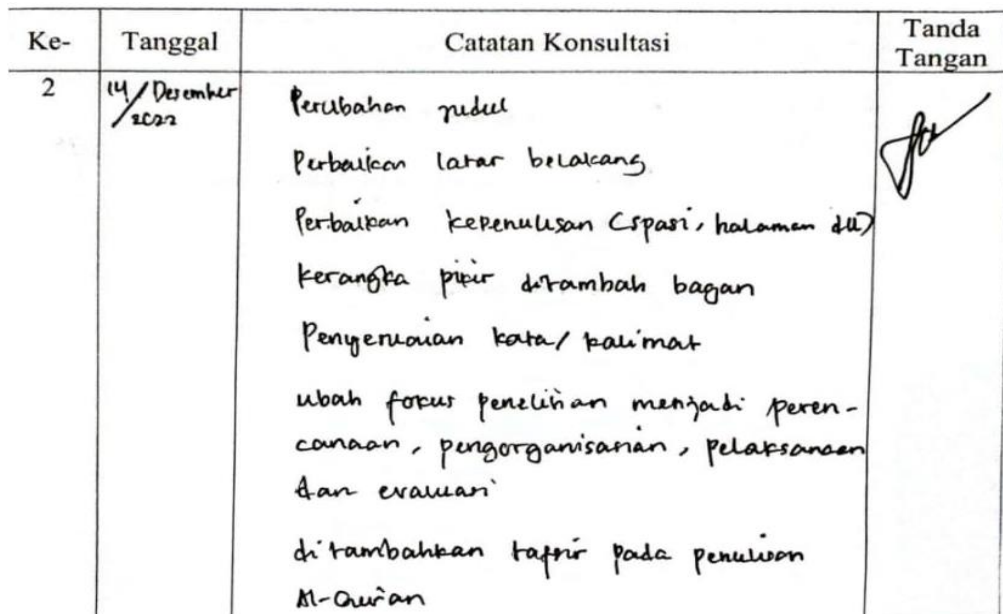 Ke- Tanggal Catatan Konsultasi Tanda Tangan
2 14/Desember 2022
Perubahan judul
Perbaikan latar belakang
Perbaikan kepenulisan (spasi, halaman dll)
kerangka pikir ditambah bagan
Penyesuaian kata/kalimat
ubah fokus penelitian menjadi peren-
canaan, pengorganisasian, pelaksanaan
dan evaluasi
ditambahkan tafsir pada penulisan
Al-Qur'an